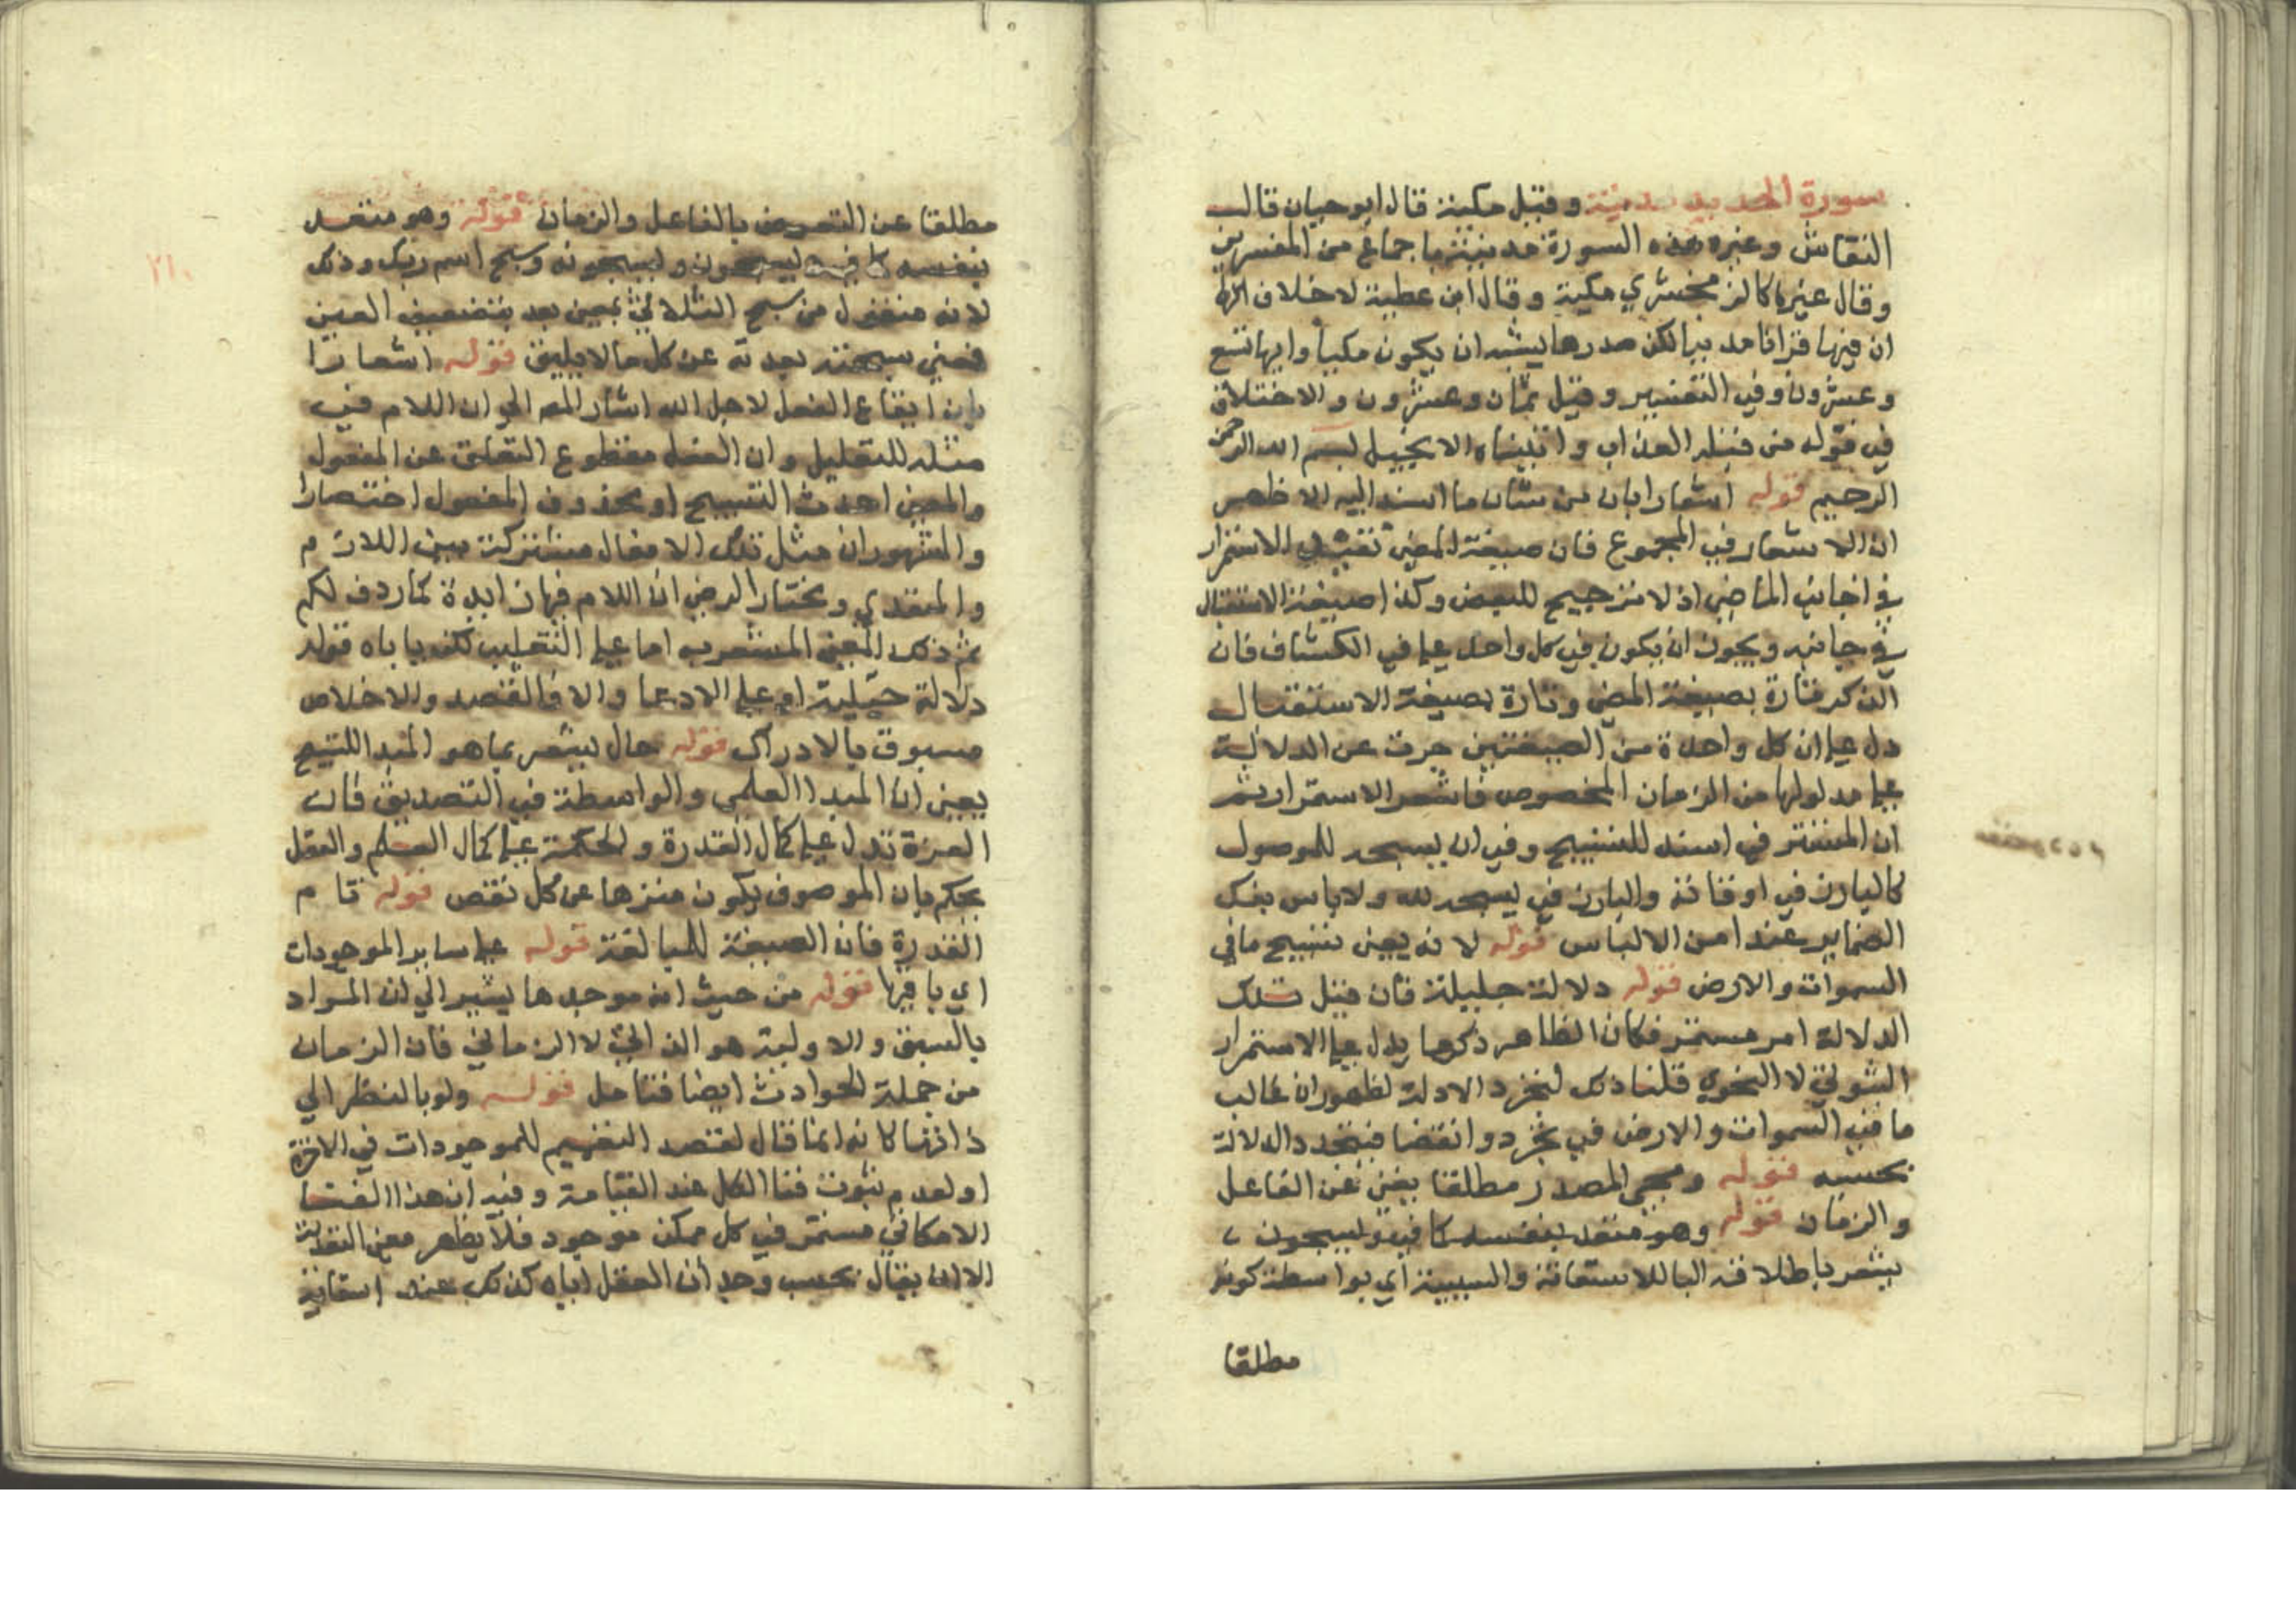 سورة الحديد مدنية وقيل مكية قال ابو حيان قال
النقاش وغيره هذه السورة مدنية باجماع من المفسرين
وقال غيرها كالزمخشري مكية وقال ابن عطية لا خلاف
ان فيها قرانا مدنيا لكن صدرها يشبه ان يكون مكيا وايها تسع
وعشرون وفي التفسير وقيل ثمان وعشرون والاختلاف
في قوله من قبله العذاب واتيناه الانجيل بسم الله الرحمن
الرحيم قوله اشعارا بان من شان ما اسند اليه الاظهر
ان الاشعار في المجموع فان صيغة المضي تفيد الاستمرار
في جانب الماضي اذ لا ترجيح للبعض وكذا صيغة الاستقبال
في جانبه ويجوز ان يكون في كل واحد على في الكشاف فان
الذكر تارة بصيغة المضي وتارة بصيغة الاستقبال
دل على ان كل واحدة من الصيغتين جرت عن الدلالة
على مدلولها من الزمان المخصوص فاشعر الاستمرار ثم
ان المستتر في اسند للتسبيح وفي ان يسبحه للموصول
كالبارز في اوقاته والبارز في يسبحه لله ولا باس بفك
الضماير عند امن الالباس قوله لانه يعني تسبيح ما في
السموات والارض قوله دلالة جبلية فان قيل تلك
الدلالة امر مستمر فكان الظاهر ذكرها يدل على الاستمرار
الثبوتي لا النحوي قلنا ذلك لتجرد الادلة لظهور ان غالب
ما في السموات والارض في تجرد وانقضا فيتجدد الدلالة
بحسبه قوله ومجي المصدر مطلقا يعني عن الفاعل
والزمان قوله وهو متعد بنفسه كما في وليسبحون
يشعر باطلاقه الباللاستعانة والسببية اي بواسطة كونه
مطلقا
مطلقا عن التعرض بالفاعل والزمان قوله وهو متعد
بنفسه كما في ليسبحون وليسبحونه وسبح اسم ربك وذلك
لانه منقول من سبح الثلاثي بمعنى بعد بتضعيف العين
فمعنى سبحته بعدته عن كل ما لا يليق قوله اشعارا
بان ايقاع الفعل لاجل الله اشار المص الى ان اللام في
مثله للتعليل وان الفعل مقطوع التعلق عن المفعول
والمعنى احدث التسبيح او محذوف المفعول اختصارا
والمشهور ان مثل تلك الافعال مشتركة بين اللازم
والمتعدي ويختار الرضي ان اللام فيها زايدة كما ردف لكم
ثم ذلك المعنى المشعر به اما على التغليب لكنه ياباه قوله
دلالة جبلية او على الادعا والا فالقصد والاخلاص
مسبوق بالادراك قوله حال يشعر بما هو المبدا للتسبيح
يعني ان المبدا العلمي والواسطة في التصديق فان
العزة تدل على كمال القدرة والحكمة على كمال العلم والعقل
يحكم بان الموصوف يكون منزها عن كل نقص قوله تام
القدرة فان الصيغة للمبالغة قوله على ساير الموجودات
اي باقيها قوله من حيث انه موجدها يشير الى ان المراد
بالسبق والاولية هو الذاتي لا الزماني فان الزمان
من جملة الحوادث ايضا فتامل قوله ولو بالنظر الى
ذاتها كانه انما قال لقصد التعميم للموجودات في الاخرة
او لعدم ثبوت فنا الكل عند القيامة وفيه ان هذا الفنا
الامكاني مستمر في كل ممكن موجود فلا يظهر معنى البعدية
الا ان يقال بحسب وجدان العقل اياه كذلك عند
٢١٠